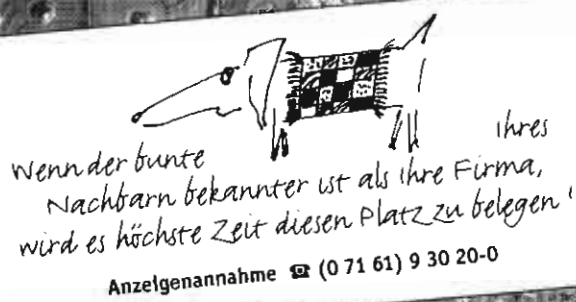 Wenn der bunte Ihres
Nachbarn bekannter ist als Ihre Firma,
wird es höchste Zeit diesen Platz zu belegen!
Anzeigenannahme ☎ (0 71 61) 9 30 20-0